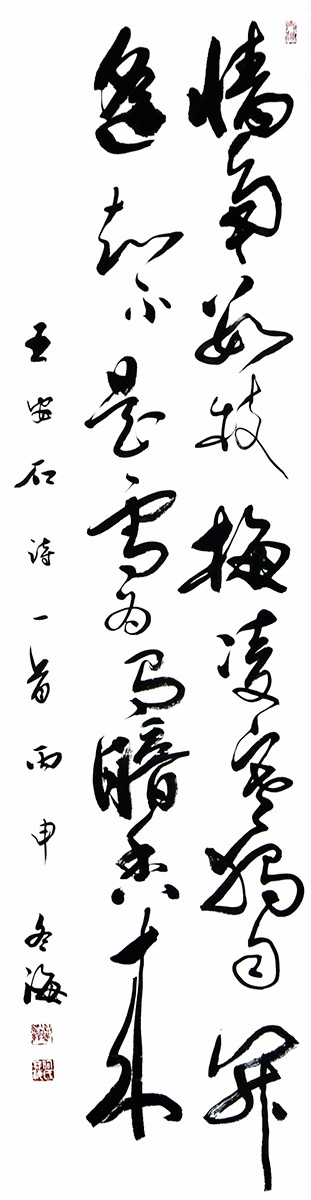 墙角数枝梅凌寒独自开
遥知不是雪为有暗香来
王安石诗一首丙申冬海